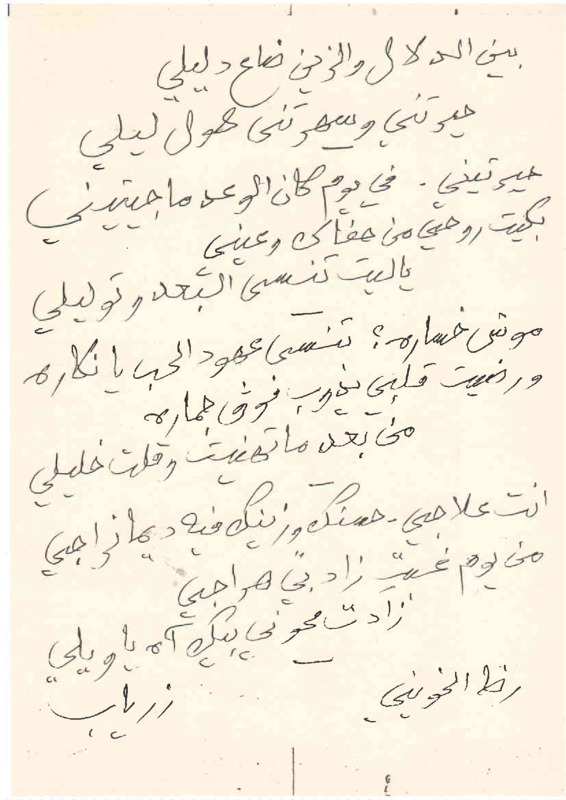 بين الدلال والزين ضاع دليلي
حيرتني وسهرتني طول ليلي
حيرتيني . في يوم كان الوعد ما جيتيني
بكيت روحي من جفاك وعيني
ياليت تنسى البعد وتوليلي
موش خساره؟ تنسى عهود الحب يا نكاره
ورضيت قلبي يذوب فوق جماره
من بعد ما تهنيت وقلت خليلي
انت علاجي - حسنك وزينك فيه ديما نراجي
من يوم غبت زاد بي هراجي
زادت محوني بيك آه يا ويلي
رضا الخويني
زرياب